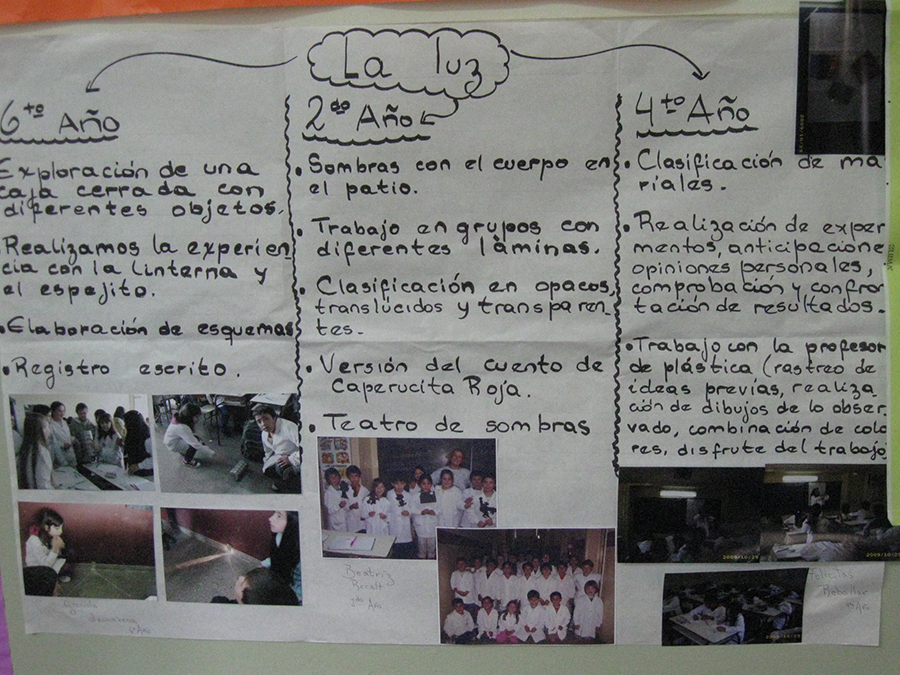 La luz
6to Año
Exploración de una
caja cerrada con
diferentes objetos.
Realizamos la experien
cia con la linterna y
el espejito.
• Elaboración de esquemas
• Registro escrito.
2do Año
• Sombras con el cuerpo en
el patio.
• Trabajo en grupos con
diferentes láminas.
• Clasificación en opacos,
translúcidos y transparen-
tes.
• Versión del cuento de
Caperucita Roja.
• Teatro de sombras
Beatriz
2do Año
4to Año
• Clasificación de ma
riales.
• Realización de exper
mentos, anticipacione
opiniones personales,
comprobación y confron
tación de resultados.
• Trabajo con la profesor
de plástica (rastreo de
ideas previas, realiza
ción de dibujos de lo obser
vado, combinación de colo
res, disfrute del trabajo
Año